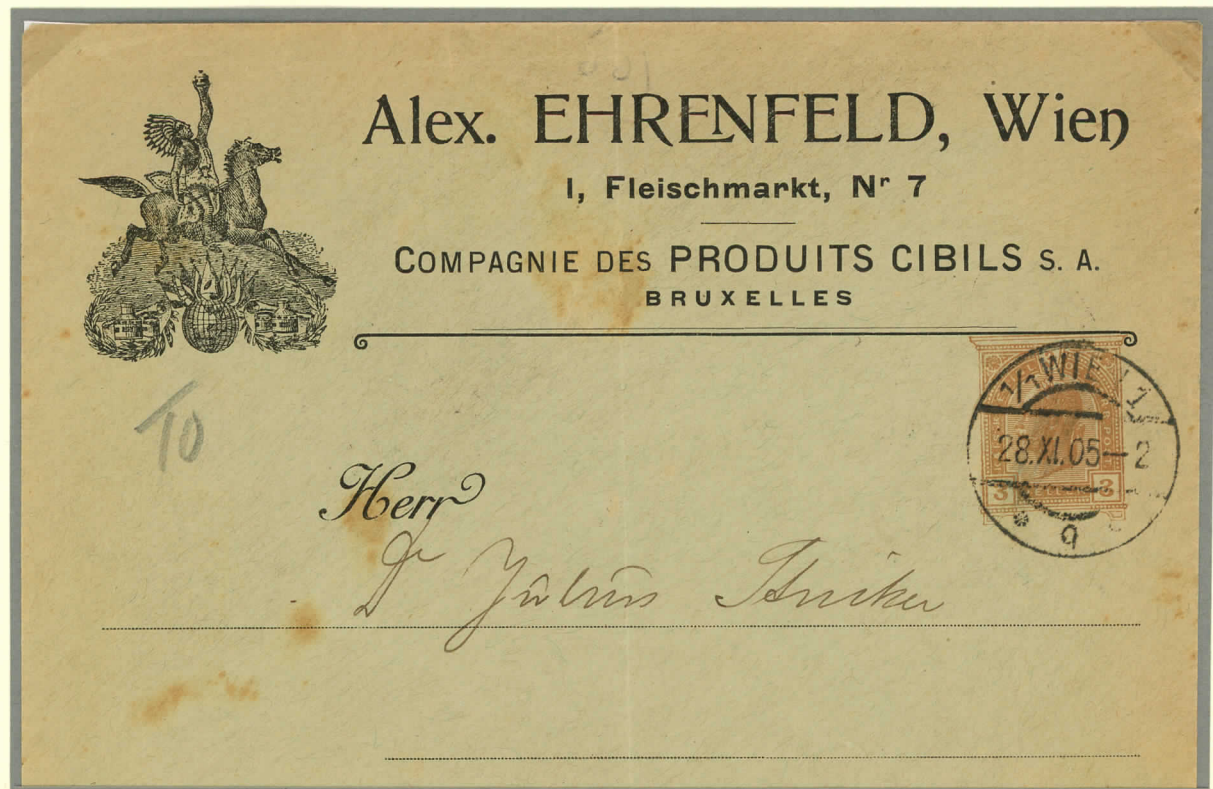 Alex. EHRENFELD, Wien
I, Fleischmarkt, Nr 7
COMPAGNIE DES PRODUITS CIBILS S. A.
BRUXELLES
1/1 WIEN 1
28.XI.05-2
3 3
9
TO
Herr
Dr Julius